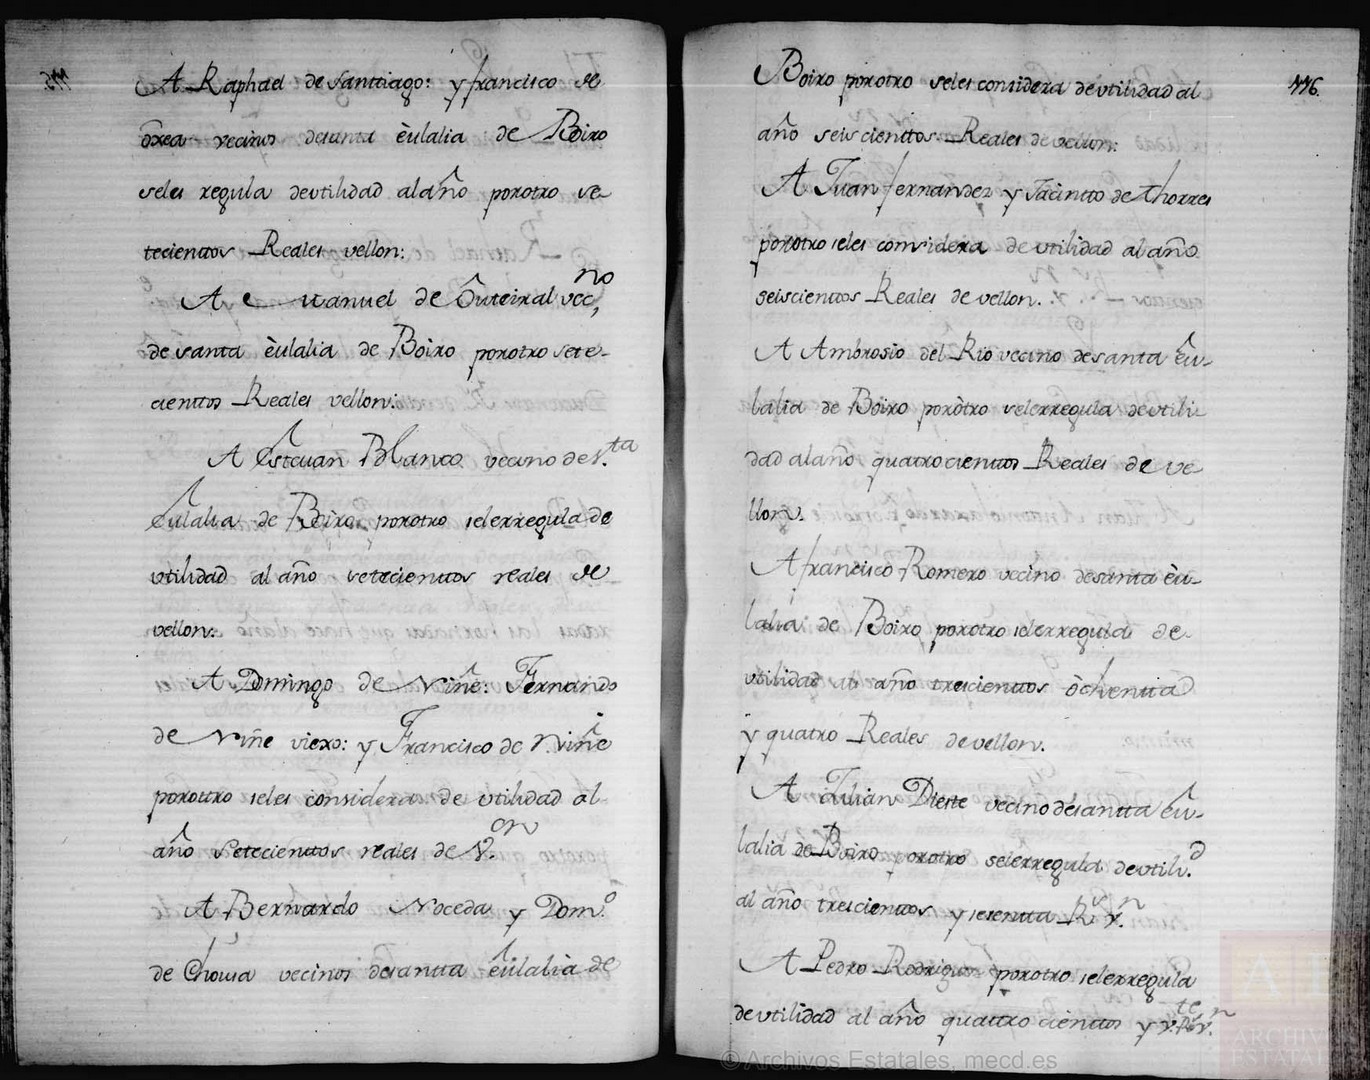 A Raphael de santtiago: y francisco de
òrea vecinos desanta èulalia de Boiro
seles regula deutilidad alaño porotro se
tecienttos Reales vellon:
A Manuel de Outeiral vec,no
de santa èulalia de Boiro porotro sete-
cienttos Reales vellon:
A Estevan Blanco vecino de S.ta
Eulalia de Boiro porotro selerregula de
utilidad al año setecienttos reales de
vellon:
A Domingo de Niñe: Fernando
de Niñe viexo: y Francisco de Niñe
porottro seles considera de utilidad al
año Setecienttos reales de V.on
A Bernardo Noceda y Dom.o
de Chousa vecinos desantta èulalia de
Boiro porotro seles considera deutilidad al
año seiscienttos Reales de vellon:
A Juan fernandez y Jacintto de thorres
porotro seles considera de utilidad al año
seiscienttos Reales de vellon.
A Ambrosio del Rio vecino desanta èu-
lalia de Boiro poròtro selerregula deutili
dad alaño quatrocienttos Reales de ve
llon.
A francisco Romero vecino desanta èu-
lalia de Boiro porotro selerregula de
utilidad al año trescienttos òchentta
y quatro Reales de vellon.
A Julian Dieste vecino desantta èu-
lalia de Boiro porotro selerregula deutili.d
al año trescienttos y sesentta R.s v.n
A Pedro Rodriguez porotro selerregula
de utilidad al año quattro cienttos y v.te Rs v.n
116.
© Archivos Estatales, mecd.es
ARCHIVOS
ESTATALES